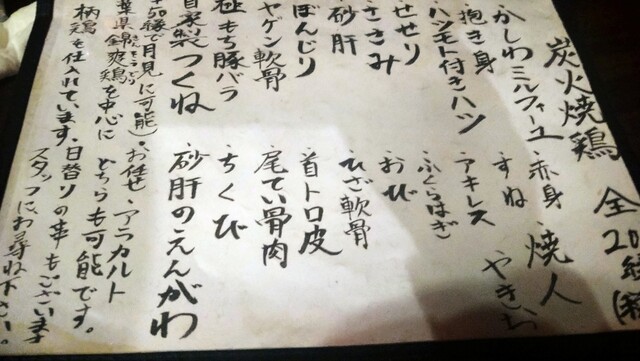 炭火焼鶏 全20
かしわミルフィーユ 赤身 焼人
抱き身 すね やきと
ハツモト付きハツ アキレス
せせり ふくらはぎ
ささみ おび
砂肝 ひざ軟骨
ぼんじり 首トロ皮
ヤゲン軟骨 尾てい骨肉
もち豚バラ ちくび
自家製つくね 砂肝のえんがわ
50縁で月見に可能) お任せ・アラカルト
葉県錦爽鶏を中心に どちらも可能です。
柄鶏を仕入れています。日替りの串もございます
スタッフにお尋ね下さい。